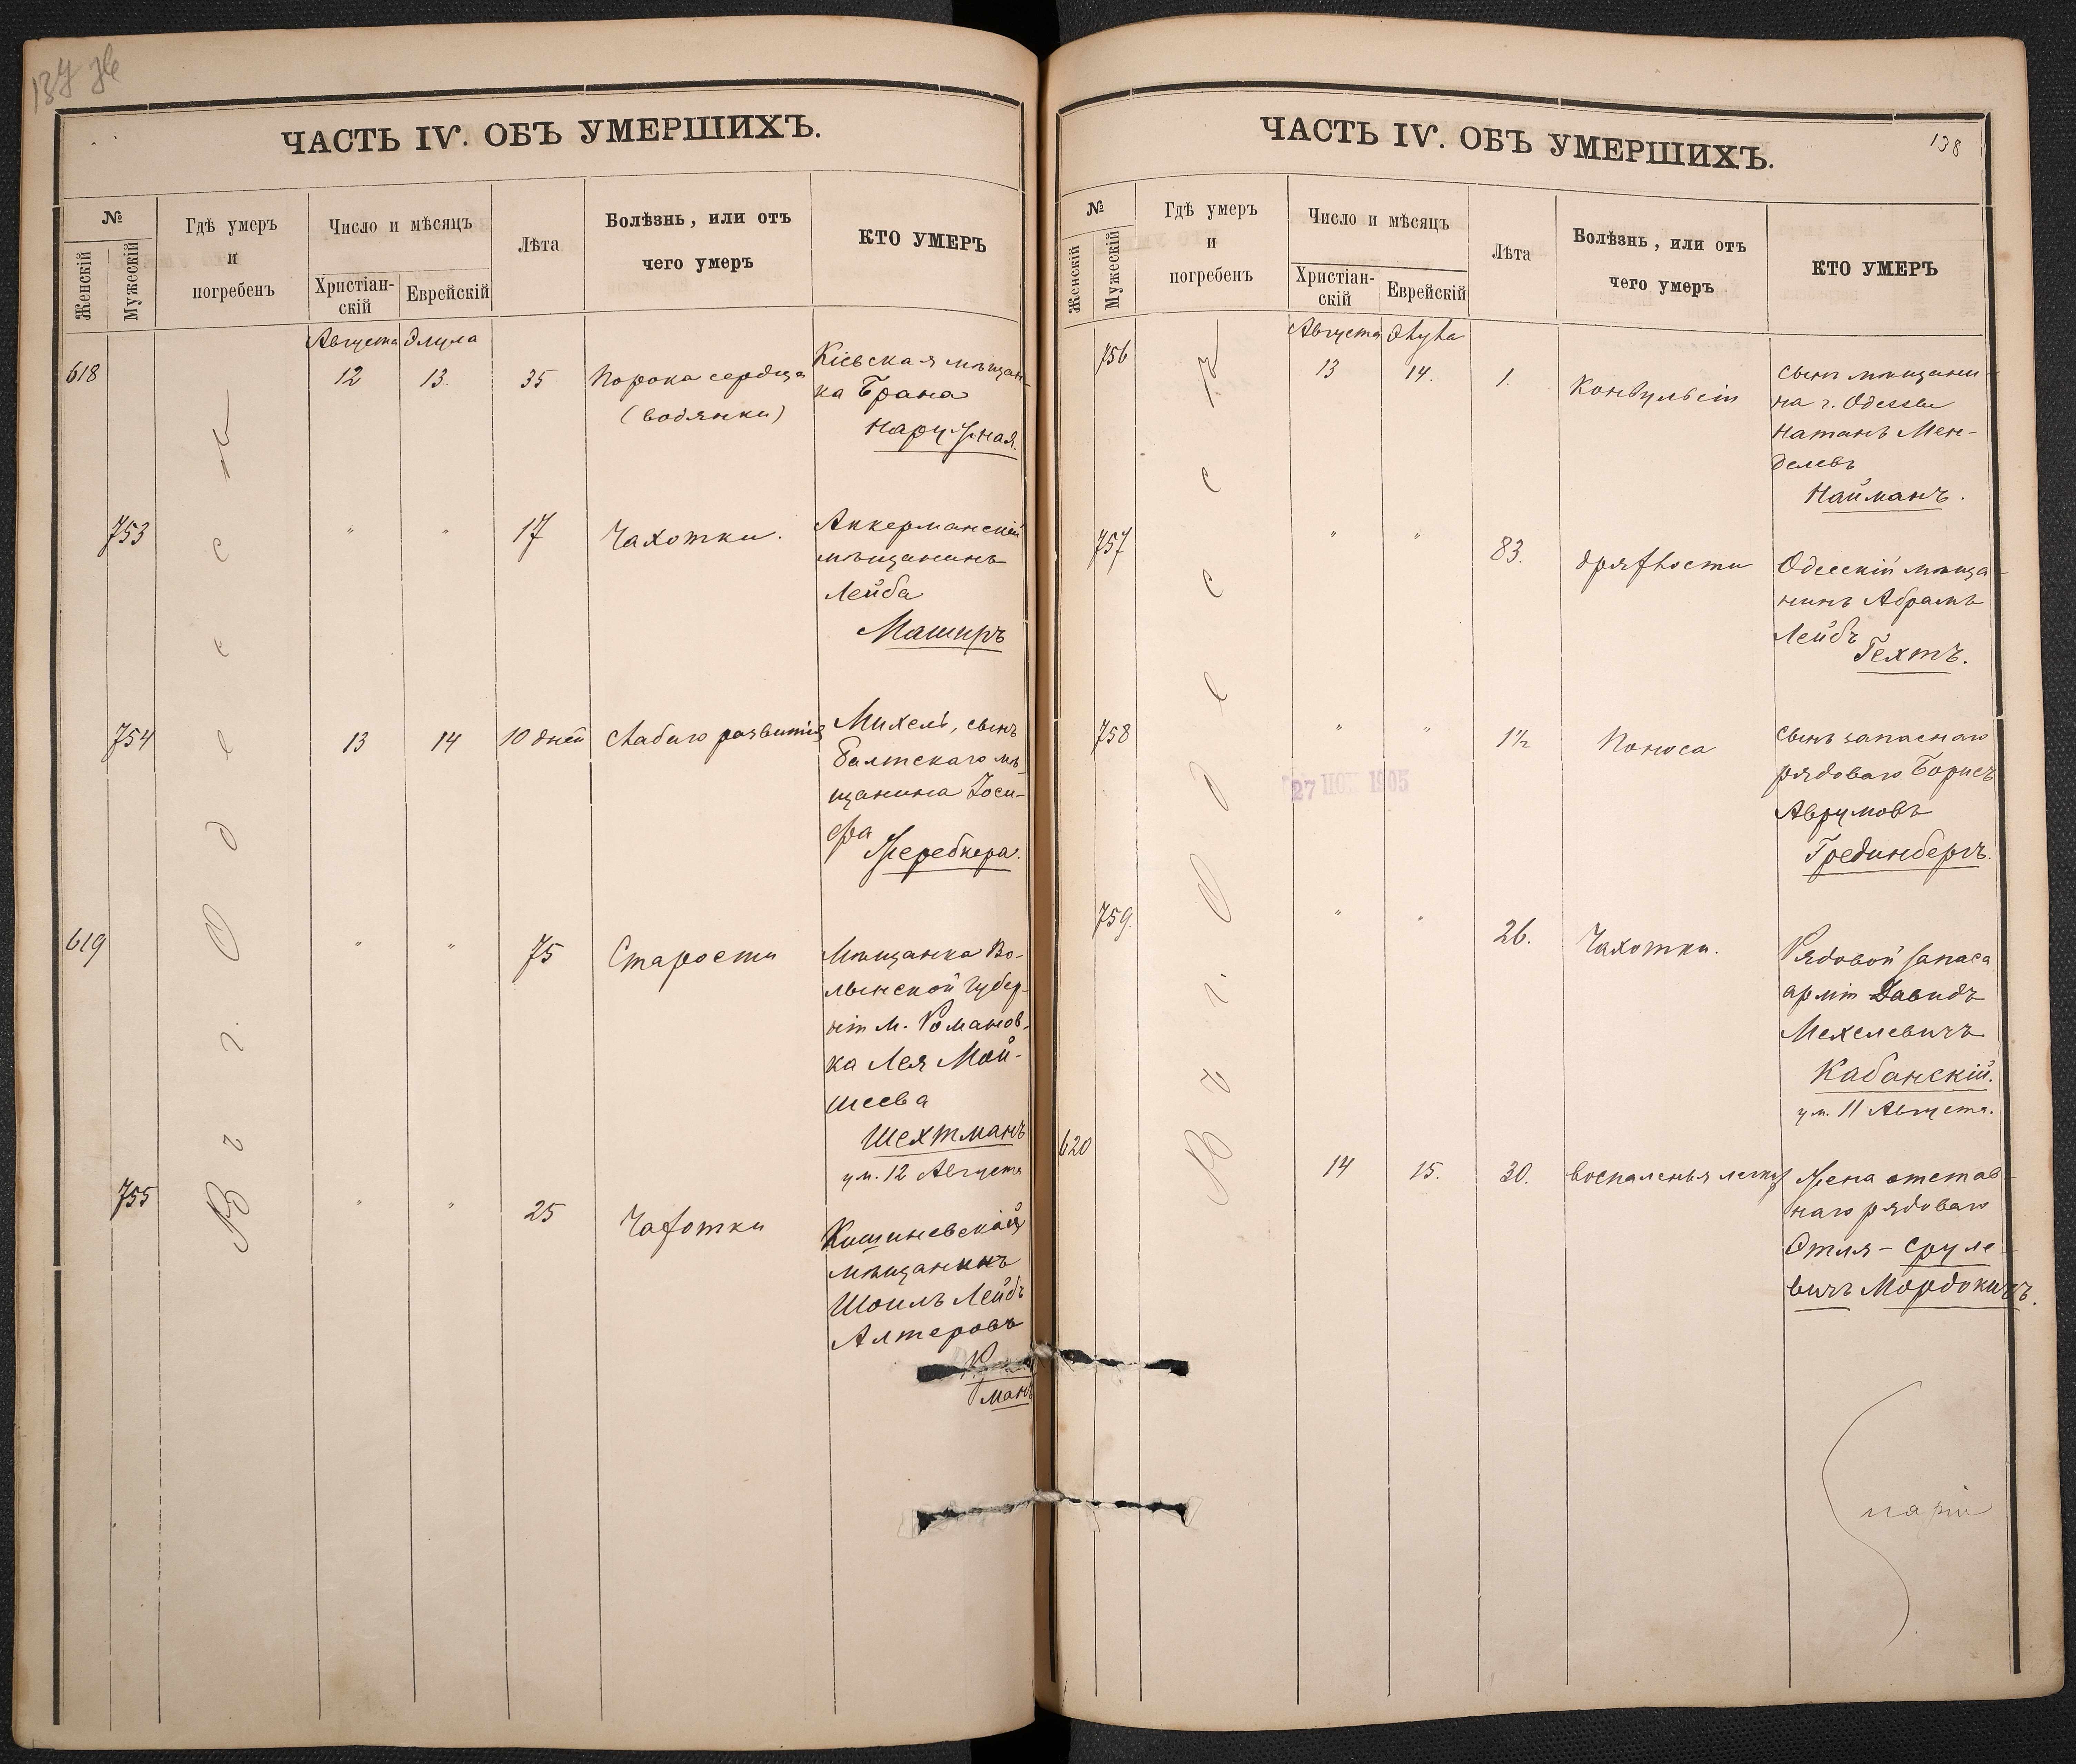 137 об
ЧАСТЬ IV. ОБЪ УМЕРШИХЪ.
№
Женскій
Мужескій
Гдѣ умеръ
и
погребенъ
Число и мѣсяцъ
Христіан-
скій
Еврейскій
Лѣта
Болѣзнь, или отъ
чего умеръ
КТО УМЕРЪ
Августа Элула
618 12 13. 35 Порока сердца
(водянки)
Кіевская мѣщан-
ка Брана
Наружная.
753 " " 17 Чахотки.
Аккерманскій
мѣщанинъ
Лейба
Маширъ
754 13 14 10 дней слабаго развитія
Михель, сынъ
Балтскаго мѣ-
щанина Іоси-
фа
Жеребкера.
619 " " 75 Старости
Мѣщанка Во-
лынской губер-
ніи м. Романов-
ка Лея Мой-
шеева
Шехтманъ
ум. 12 Августа
755 " " 25 Чахотки
Кишиневскій
мѣщанинъ
Шоилъ Лейбъ
Алтеровъ
манъ
Въ г. Одессѣ
ЧАСТЬ IV. ОБЪ УМЕРШИХЪ.
138
№
Женскій
Мужескій
Гдѣ умеръ
и
погребенъ
Число и мѣсяцъ
Христіан-
скій
Еврейскій
Лѣта
Болѣзнь, или отъ
чего умеръ
КТО УМЕРЪ
Августа Элула
756 13 14. 1. Конвульсіи
сынъ мѣщани-
на г. Одессы
Натанъ Мен-
делевъ
Найманъ.
757 " " 83. дряхлости
Одесскій мѣща-
нинъ Абрамъ
Лейбъ
Гехтъ.
758 " " 1½ Поноса
сынъ запаснаго
рядоваго Борисъ
Аврумовъ
Грединбергъ.
27 1905
759. " " 26. Чахотки.
Рядовой запаса
арміи Давидъ
Мехелевичъ
Кабанскій.
ум. 11 Августа.
620 14 15. 30. воспаленья легкихъ
Жена отстав-
наго рядоваго
Этля - Сруле-
вичъ Мордокичъ.
Въ г. Одессѣ